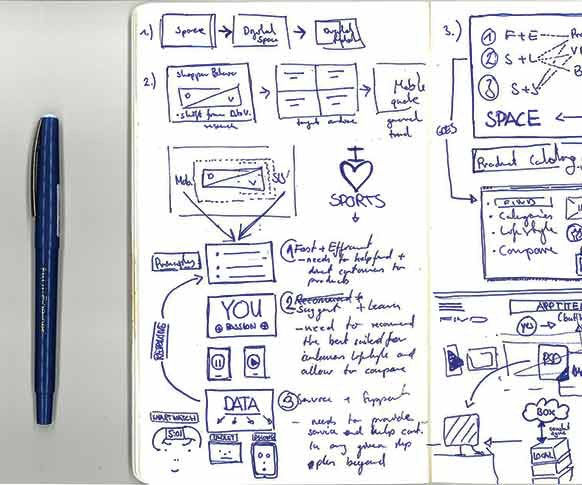 1.)
Space
Digital
Space
Digital
2.)
Shopper Behav.
D
V
• shift from D to V.
research
target audience
Mobile
quote
general
trend
Mob.
D
V
SUS
SPORTS
Principles
1 Fast + Efficient
- needs to helpful +
direct customers to
products
YOU
PASSION
2 Recommend +
Suggest + Learn
- need to recommend
the best suited for
customers lifestyle and
allow to compare
DATA
3 Service + Support
- needs to provide
service and help cust.
in any given step
plus beyond
SMARTWATCH
TABLET
3.)
1 F+E
2 S+L
3 S+S
SPACE
Product Catalog
FIND
• Categories
• Lifestyle
• Compare
YES
BOX
LOCAL